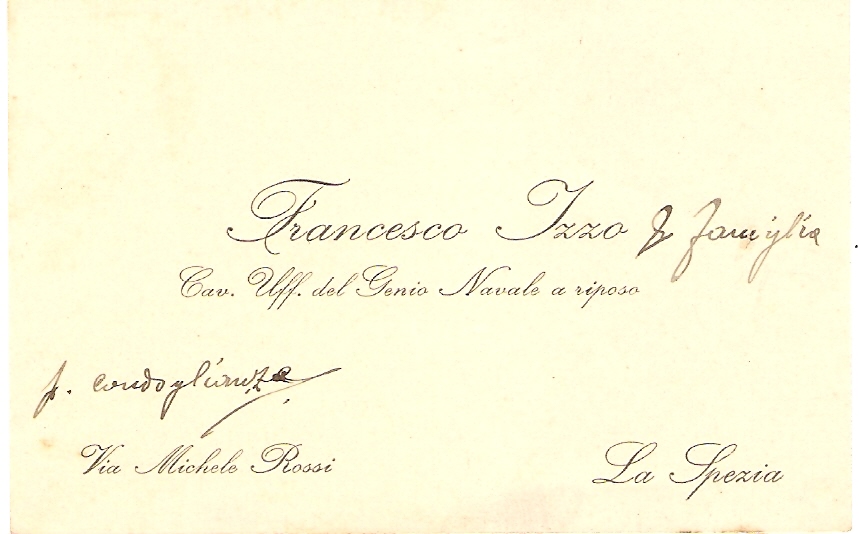 Francesco Izzo & famiglia
Cav. Uff. del Genio Navale a riposo
p. condoglianze
Via Michele Rossi
La Spezia